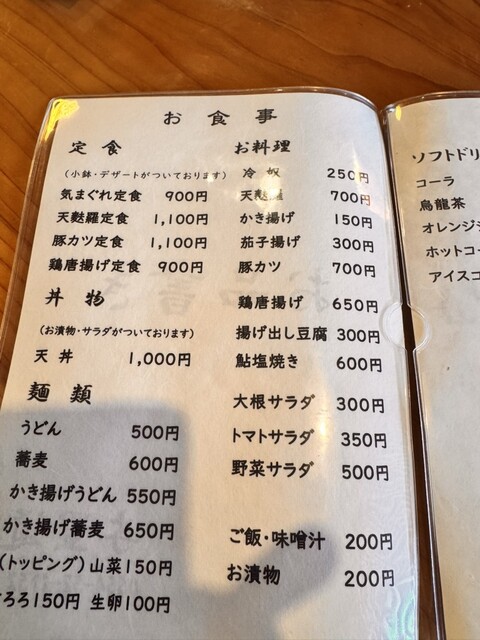 お食事
定食
(小鉢・デザートがついております)
気まぐれ定食 900円
天麩羅定食 1,100円
豚カツ定食 1,100円
鶏唐揚げ定食 900円
丼物
(お漬物・サラダがついております)
天丼 1,000円
麺類
うどん 500円
蕎麦 600円
かき揚げうどん 550円
かき揚げ蕎麦 650円
(トッピング)山菜150円
ろろ150円 生卵100円
お料理
冷奴 250円
天麩羅 700円
かき揚げ 150円
茄子揚げ 300円
豚カツ 700円
鶏唐揚げ 650円
揚げ出し豆腐 300円
鮎塩焼き 600円
大根サラダ 300円
トマトサラダ 350円
野菜サラダ 500円
ご飯・味噌汁 200円
お漬物 200円
ソフトドリ
コーラ
烏龍茶
オレンジ
ホットコー
アイスコ